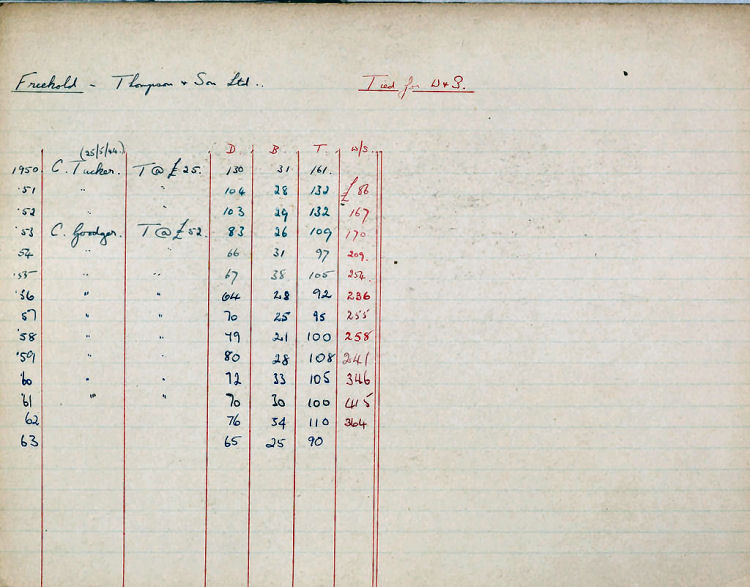 Freehold - Thompson & Son Ltd.. Tied for W & S.
(25/5/44.) D B. T. W/S.
1950. C. Tucker. T @ £25. 130 31 161.
'51 " " 104 28 132 £86
'52 " " 103 29 132 167
'53 C. Goodger. T @ £52. 83 26 109 170
54 " 66 31 97 209.
'55 " " 67 38 105 254.
'56 " " 64 28 92 236
57 " " 70 25 95 255
'58 " " 79 21 100 258
'59 " " 80 28 108 241
'60 " " 72 33 105 346
'61 " " 70 30 100 415
62 76 34 110 364
63 65 25 90